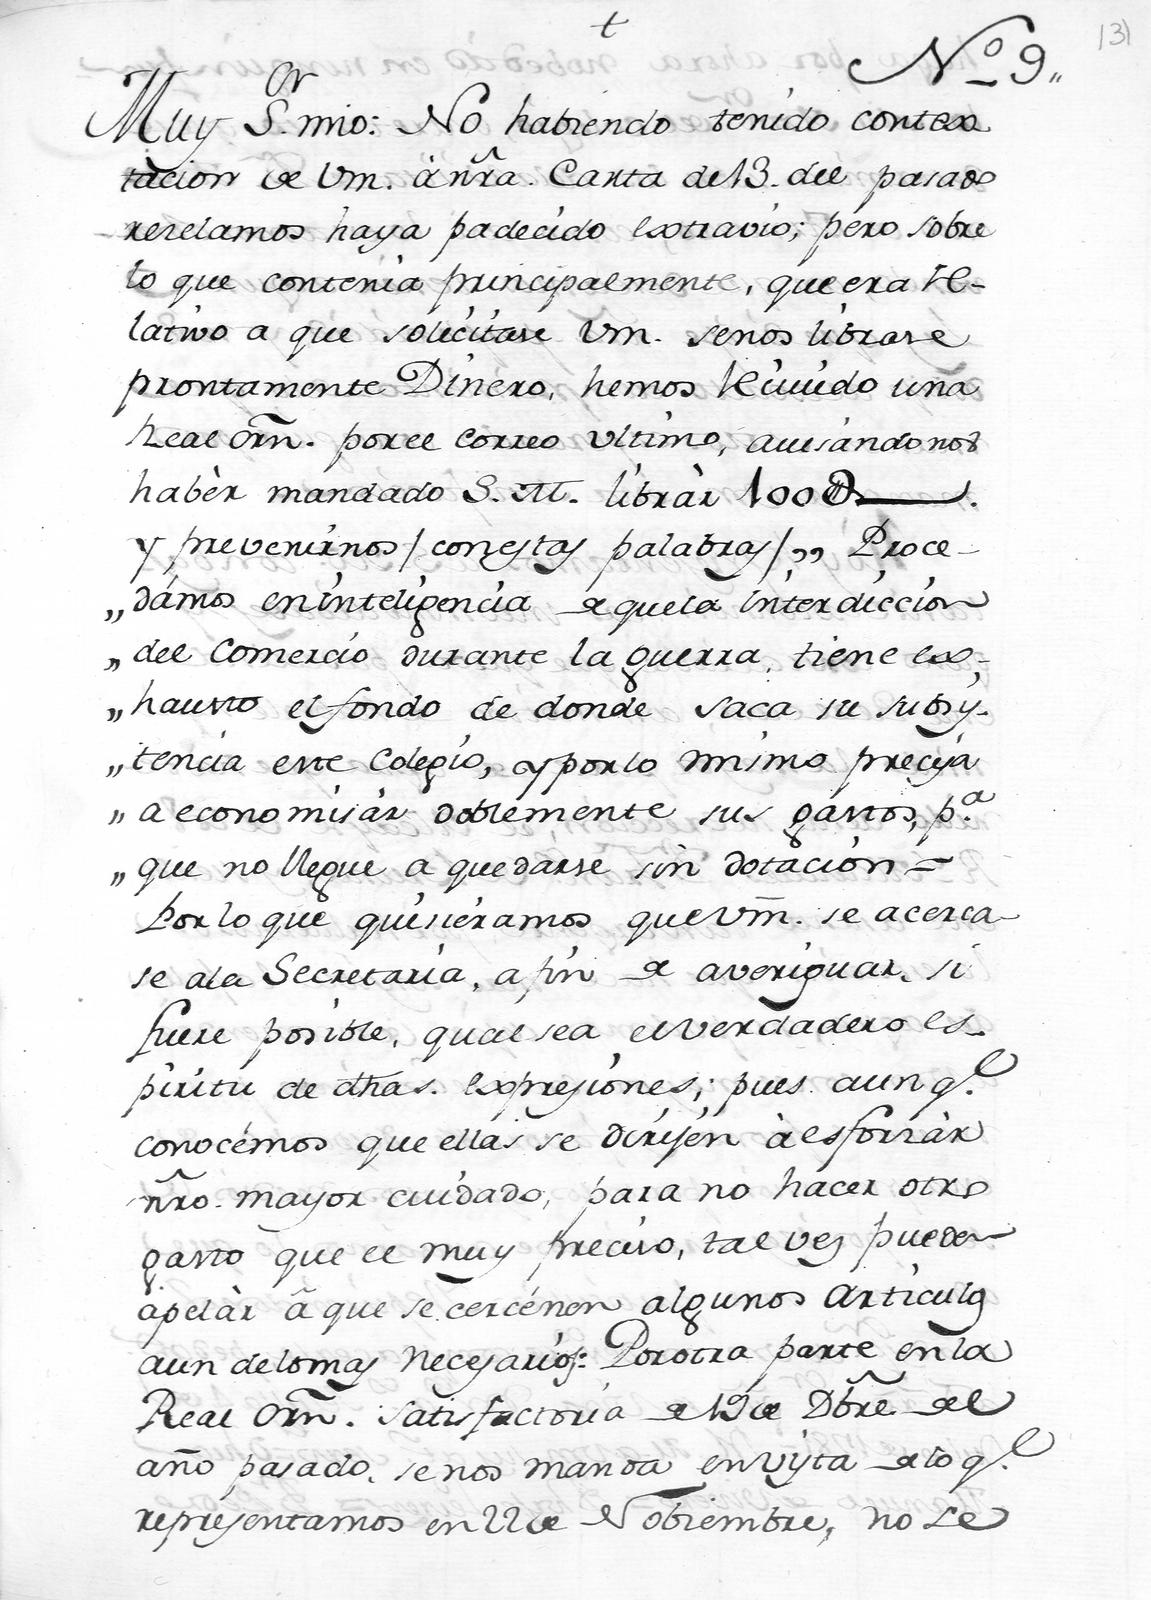 †
131
Nº 9,,
Muy Sor. mio: No habiendo tenido contex
tacion de Vm. à ñra. Carta de 13. del pasado
rezelamos haya padecido extravio; pero sobre
lo que contenia principalmente, que era re-
lativo a que solicitase Vm. senos librase
prontamente Dinero, hemos recivido una
Real Orñ. porel correo ultimo, avisandonos
habèr mandado S. M. libràr
y prevenirnos/conestas palabras/,, Proce-
,,dámos eninteligencia de quela interdiccion
,,del Comercio durante la guerra, tiene ex-
,,hausto el fondo de donde saca su subsis-
,,tencia este Colegio, y porlo mismo precisa
,,a economisár doblemente sus gastos, p.a
,,que no llegue a quedarse sin dotacion =
Porlo que quisiéramos queVm. se acerca-
se ala Secretaria, a fin de averiguar, si
fuere posible, qual sea elverdadero es-
píritu de dhas. expresiones; pues aun q.e
conocémos que ellas se dirijen à esforzàr
ñro. mayor cuidado, para no hacer otro
gasto que el muy preciso, tal vez pueden
apelàr à que se cercénen algunos articulos
aun delomas necesarios: Porotra parte enla
Real Orñ. satisfactoria de 19 de Dbre. del
año pasado, se nos manda envista delo q.e
representamos en 22 de Nobiembre, no se